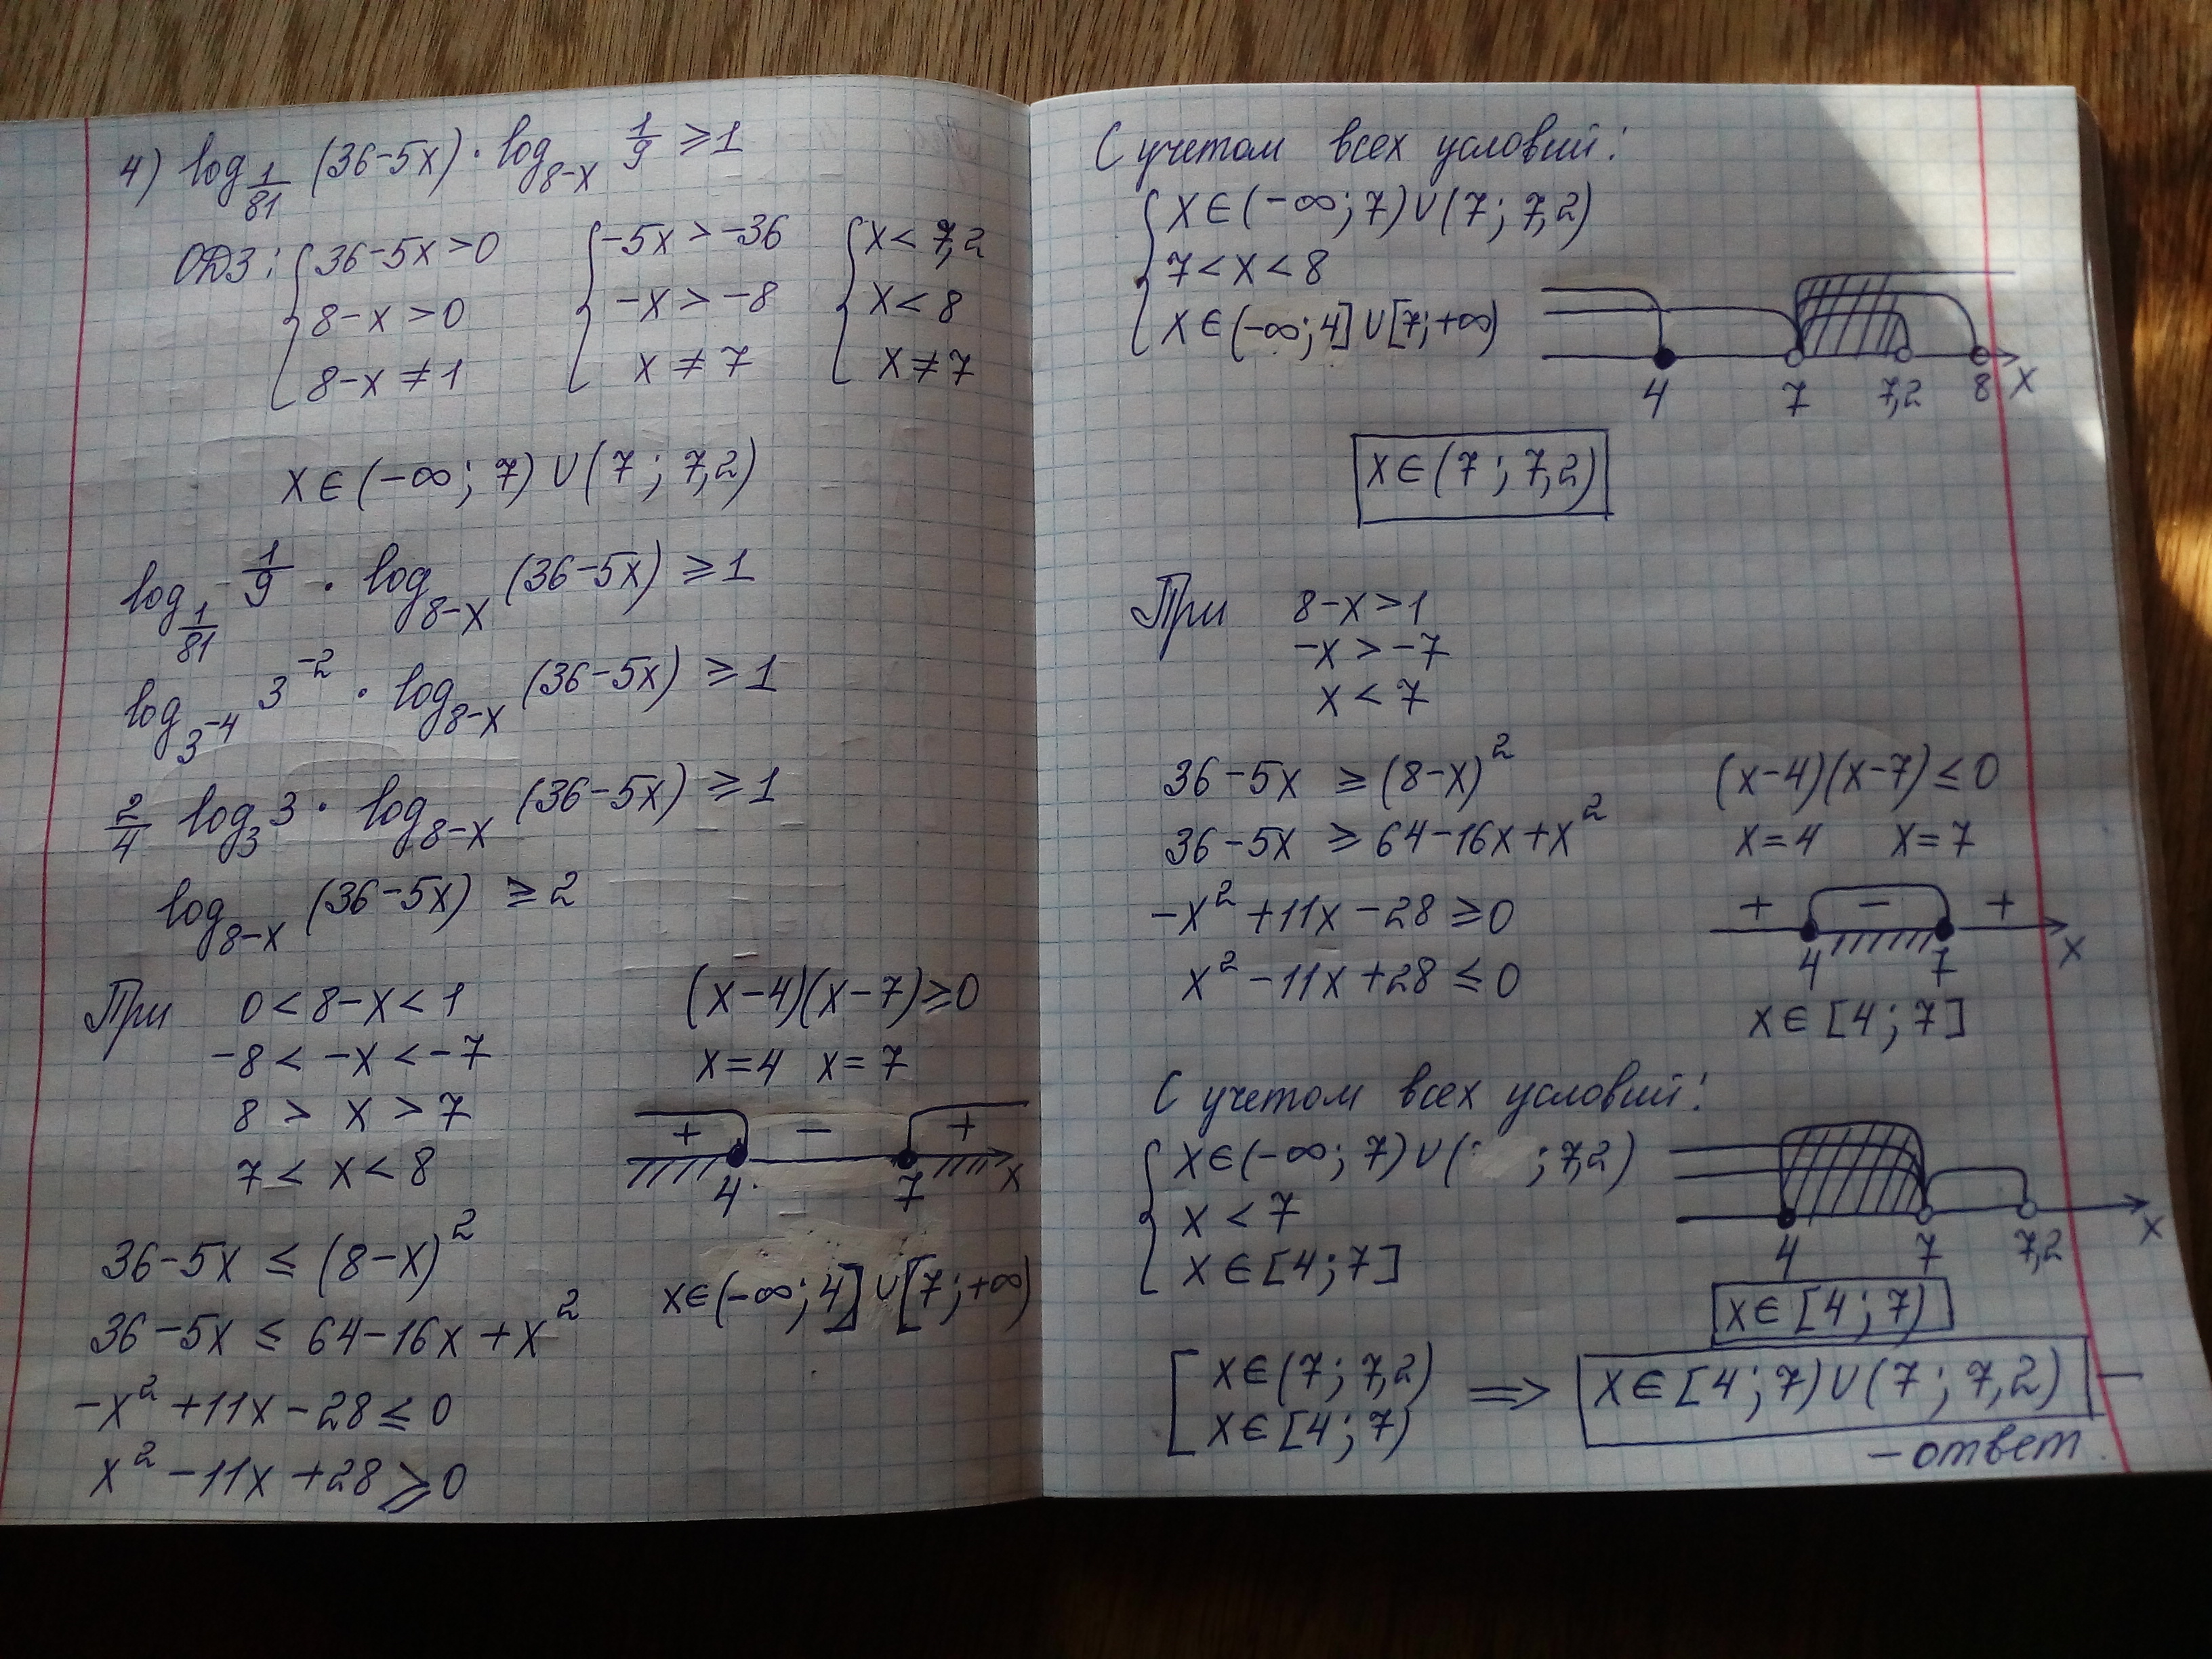 4) log_{1/81} (36-5x) · log_{8-x} 1/9 ≥ 1
ОДЗ: { 36-5x > 0 { -5x > -36 { x < 7,2
8-x > 0 -x > -8 x < 8
8-x ≠ 1 x ≠ 7 x ≠ 7
x ∈ (-∞; 7) ∪ (7; 7,2)
log_{1/81} 1/9 · log_{8-x} (36-5x) ≥ 1
log_{3^{-4}} 3^{-2} · log_{8-x} (36-5x) ≥ 1
2/4 log_3 3 · log_{8-x} (36-5x) ≥ 1
log_{8-x} (36-5x) ≥ 2
При 0 < 8-x < 1
-8 < -x < -7
8 > x > 7
7 < x < 8
36-5x ≤ (8-x)²
36-5x ≤ 64-16x+x²
-x²+11x-28 ≤ 0
x²-11x+28 ≥ 0
(x-4)(x-7) ≥ 0
x=4 x=7
+ - +
4 7 x
x ∈ (-∞; 4] ∪ [7; +∞)
С учетом всех условий:
{ x ∈ (-∞; 7) ∪ (7; 7,2)
7 < x < 8
x ∈ (-∞; 4] ∪ [7; +∞)
4 7 7,2 8 x
x ∈ (7; 7,2)
При 8-x > 1
-x > -7
x < 7
36-5x ≥ (8-x)²
36-5x ≥ 64-16x+x²
-x²+11x-28 ≥ 0
x²-11x+28 ≤ 0
(x-4)(x-7) ≤ 0
x=4 x=7
+ - +
4 7 x
x ∈ [4; 7]
С учетом всех условий:
{ x ∈ (-∞; 7) ∪ ( ; 7,2)
x < 7
x ∈ [4; 7]
4 7 7,2 x
x ∈ [4; 7)
[ x ∈ (7; 7,2)
x ∈ [4; 7)
⟹ x ∈ [4; 7) ∪ (7; 7,2) —
- ответ.